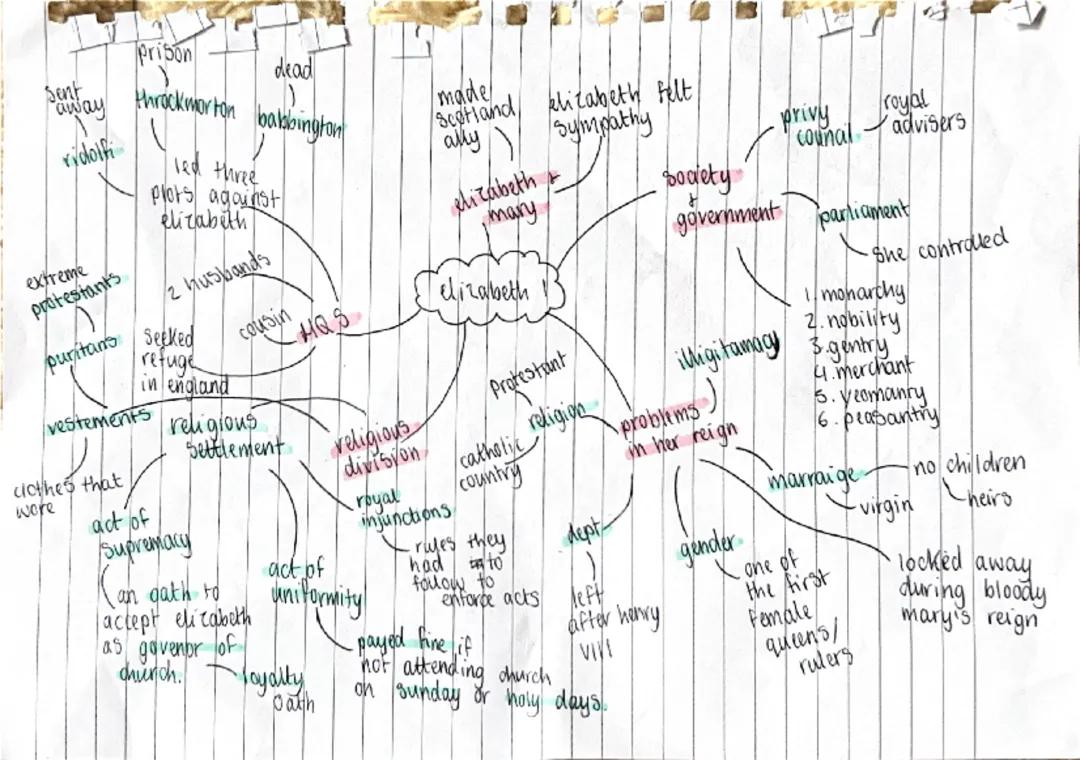 elizabeth 1
elizabeth &
mary
made
scotland
ally
elizabeth felt
sympathy
society
&
government
privy
council
royal
advisers
parliament
she controlled
1. monarchy
2. nobility
3. gentry
4. merchant
5. yeomanry
6. peasantry
problems
in her reign
illigitamacy
marraige
no children
heirs
virgin
locked away
during bloody
mary's reign
gender
one of
the first
female
queens/
rulers
dept
left
after henry
VIII
religion
Protestant
catholic
country
religious
division
royal
injunctions
rules they
had to
follow to
enforce acts
religious
settlement
act of
uniformity
payed fine if
not attending church
on sunday or holy days.
act of
supremacy
an oath to
accept elizabeth
as govenor of
church.
loyalty
oath
vestements
clothes that
wore
puritans
extreme
protestants
MQS
cousin
2 husbands
seeked
refuge
in england
led three
plots against
elizabeth
ridolfi
sent
away
throckmorton
prison
babbington
dead